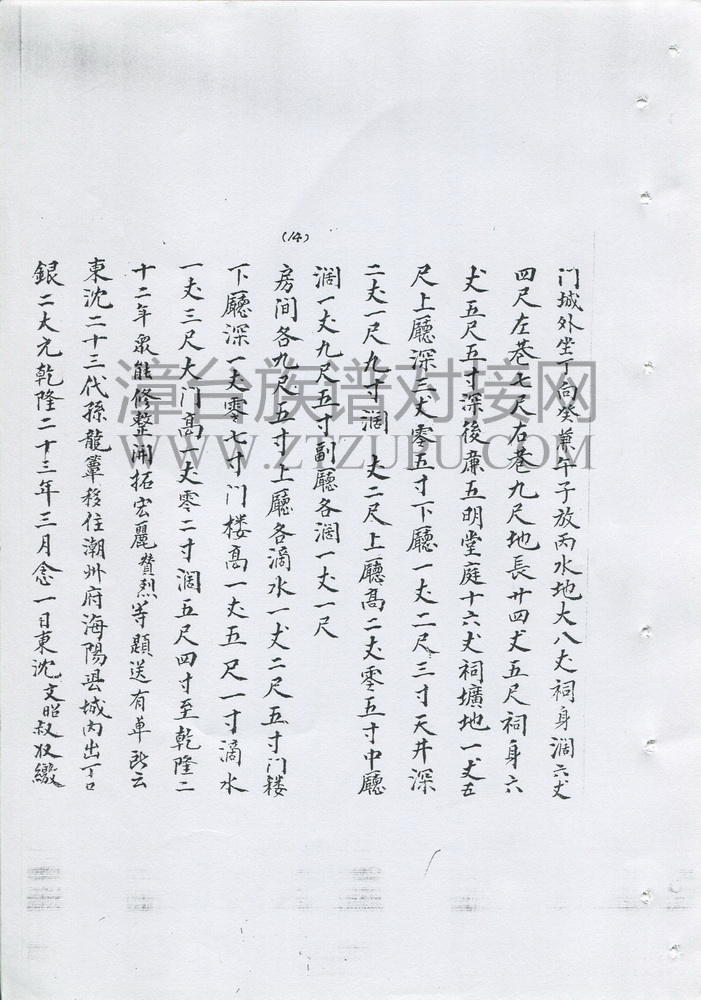 (14)
门城外坐丁向癸兼午子放丙水地大八丈祠身濶六丈
四尺左巷七尺右巷九尺地長廿四丈五尺祠身六
丈五尺五寸深後兼五明堂庭十六丈祠壙地一丈五
尺上廳深三丈零五寸下廳一丈二尺三寸天井深
二丈一尺九寸濶 丈二尺上廳髙二丈零五寸中廳
濶一丈九尺五寸副廳各濶一丈一尺
房间各九尺五寸上廳各滴水一丈二尺五寸门楼
下廳深一丈零七寸门楼髙一丈五尺一寸滴水
一丈三尺大门髙一丈零二寸濶五尺四寸至乾隆二
十二年眾能修整開拓宏麗贊烈等題送有单影云
東沈二十三代孫龍葦移住潮州府海陽县城内出丁口
銀二大元乾隆二十三年三月念一日東沈文昭叔收繳
漳台族谱对接网
WWW.ZTZUPU.COM